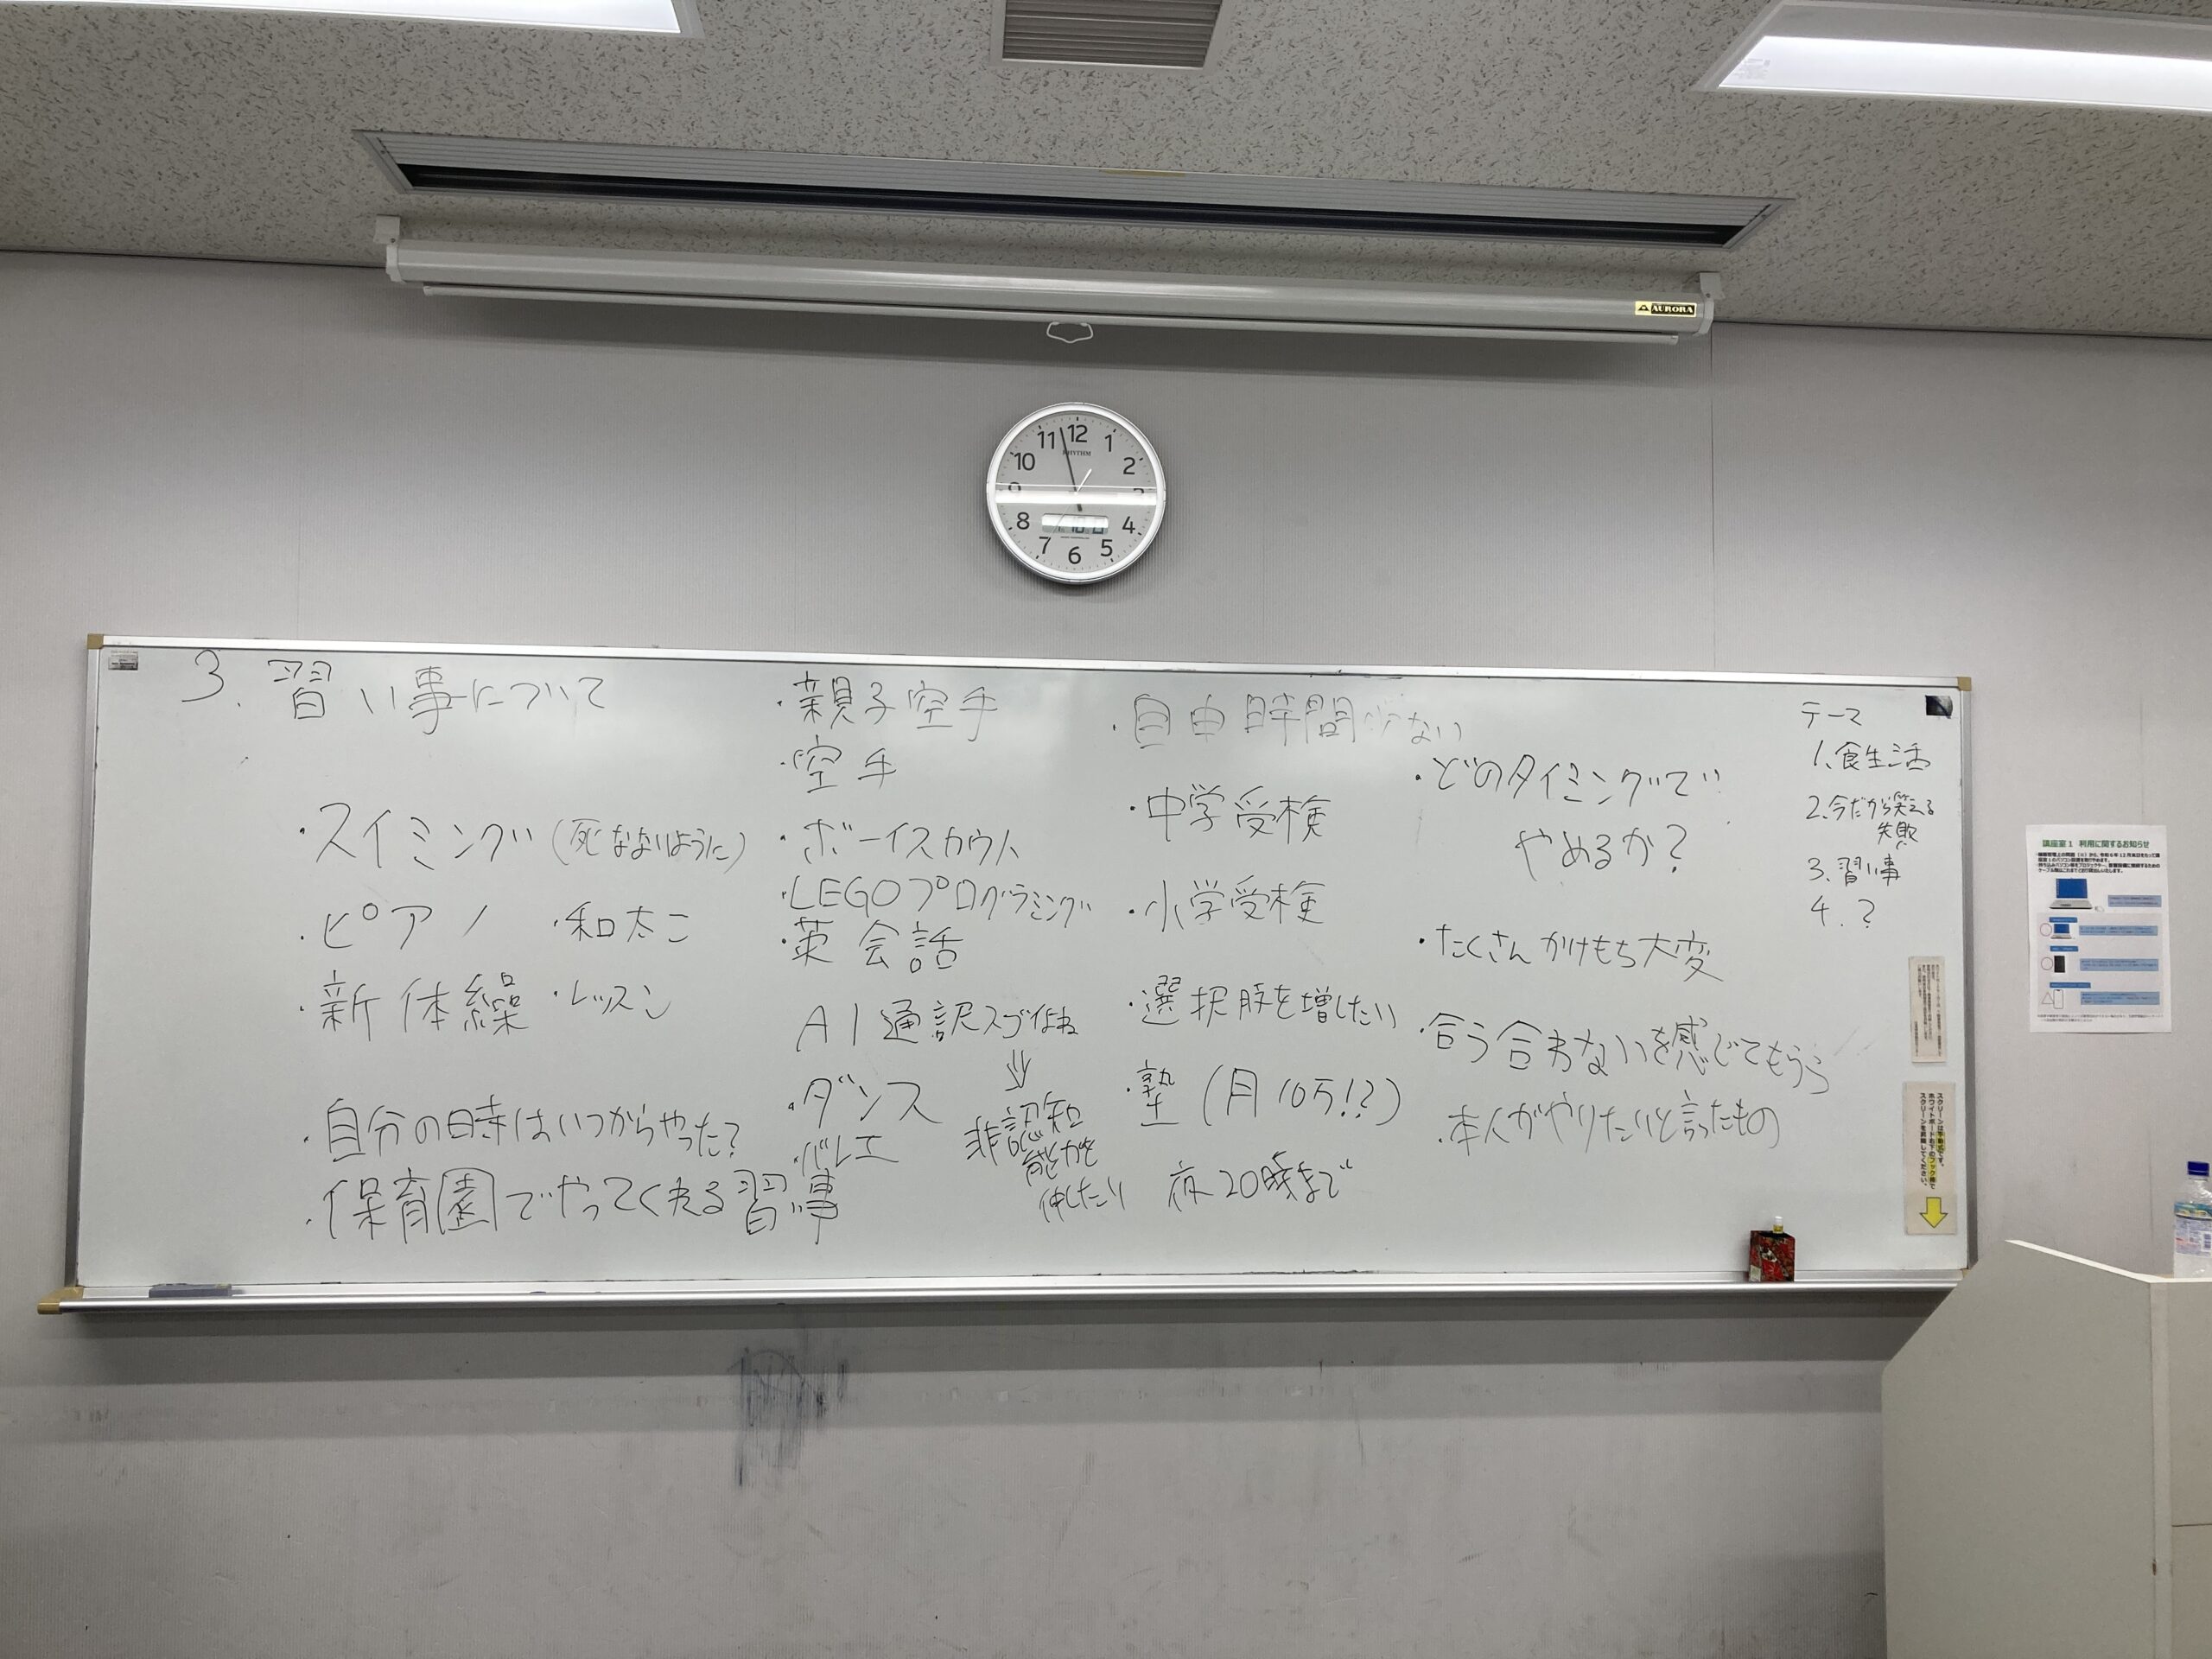 AURORA
11 12 1
10 2
8 4
7 6 5
RHYTHM
3. 習い事について
・スイミング (死なないように)
・ピアノ ・和太こ
・新体繰 ・レッスン
・自分の時はいつからやった?
・保育園でやってくれる習い事
・親子空手
・空手
・ボーイスカウト
・LEGOプログラミング
・英会話
AI通訳スゴイよね
⇓
非認知
能力を
伸したい
・ダンス
・バレエ
・自由時間少ない
・中学受検
・小学受検
・選択肢を増したい
・塾 (月10万!?)
夜20時まで
・どのタイミングで
やめるか?
・たくさんかけもち大変
・合う合わないを感じてもらう
・本人がやりたいと言ったもの
テーマ
1. 食生活
2. 今だから笑える
失敗
3. 習い事
4. ?
スクリーンは手動式です。
ホワイトボード右下のフック棒で
スクリーンを昇降してください。
講座室1 利用に関するお知らせ